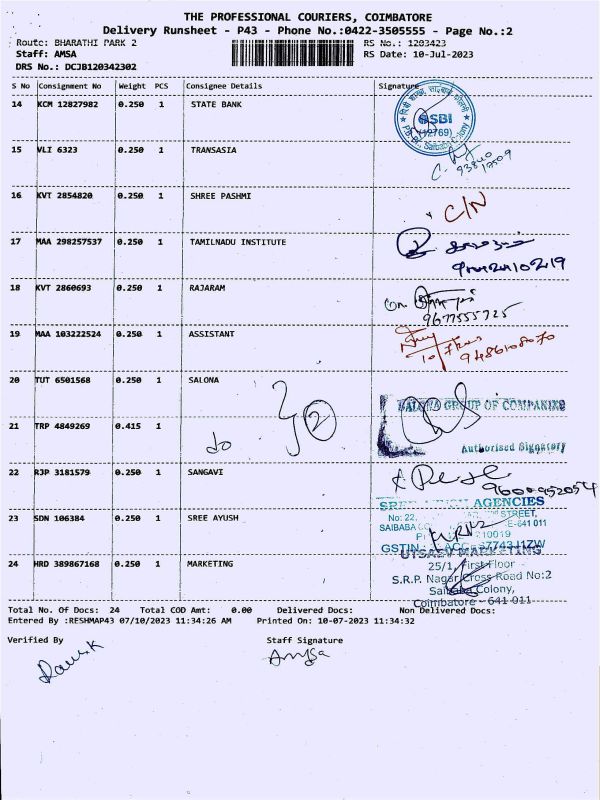 THE PROFESSIONAL COURIERS, COIMBATORE
Delivery Runsheet - P43 - Phone No.:0422-3505555 - Page No.:2
Route: BHARATHI PARK 2 RS No.: 1203423
Staff: AMSA RS Date: 10-Jul-2023
DRS No.: DCJB120342302
S No Consignment No Weight PCS Consignee Details Signature
14 KCM 12827982 0.250 1 STATE BANK
SBI
(12769)
Saibaba Colony
15 VLI 6323 0.250 1 TRANSASIA
16 KVT 2854820 0.250 1 SHREE PASHMI C/N
17 MAA 298257537 0.250 1 TAMILNADU INSTITUTE
18 KVT 2860693 0.250 1 RAJARAM
9677555725
19 MAA 103222524 0.250 1 ASSISTANT
9486108070
20 TUT 6501568 0.250 1 SALONA
SALONA GROUP OF COMPANIES
21 TRP 4849269 0.415 1 do 2
Authorised Signatory
22 RJP 3181579 0.250 1 SANGAVI
9600952054
AGENCIES
23 SDN 106384 0.250 1 SREE AYUSH
No: 22, STREET,
SAIBABA E-641 011
GSTIN
UTSAV MARKETING
24 HRD 389867168 0.250 1 MARKETING
25/1, First Floor
S.R.P. Nagar Cross Road No:2
Saibaba Colony,
Coimbatore - 641 011
Total No. Of Docs: 24 Total COD Amt: 0.00 Delivered Docs: Non Delivered Docs:
Entered By :RESHMAP43 07/10/2023 11:34:26 AM Printed On: 10-07-2023 11:34:32
Verified By Staff Signature
Amsa